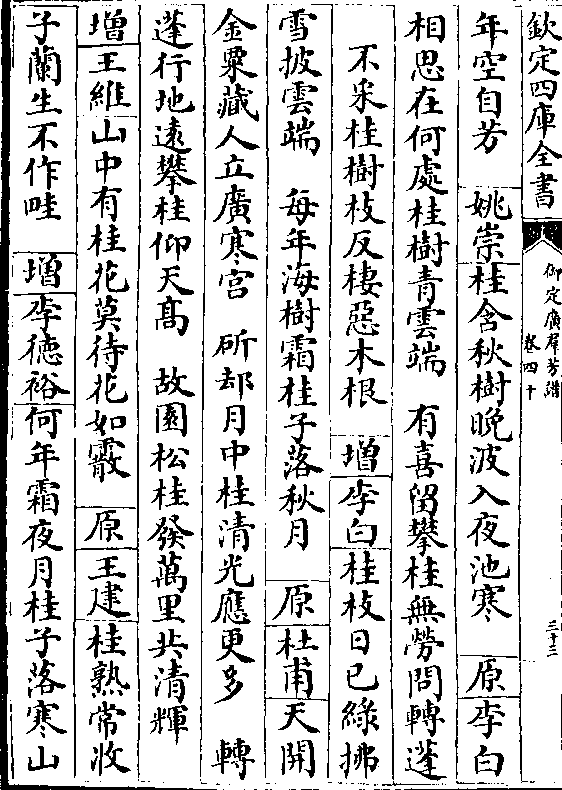 欽定四庫全書
御定廣群芳譜
卷四十
三十三
年空自芳　姚崇桂含秋樹晚波入夜池寒　原李白
相思在何處桂樹青雲端　有喜留攀桂無勞問轉蓬
不采桂樹枝反棲惡木根　增李白桂枝日已綠拂
雪披雲端　每年海樹霜桂子落秋月　原杜甫天開
金粟藏人立廣寒宫　斫却月中桂清光應更多　轉
蓬行地逺攀桂仰天髙　故園松桂發萬里共清輝
增王維山中有桂花莫待花如霰　原王建桂熟常收
子蘭生不作畦　增李徳裕何年霜夜月桂子落寒山